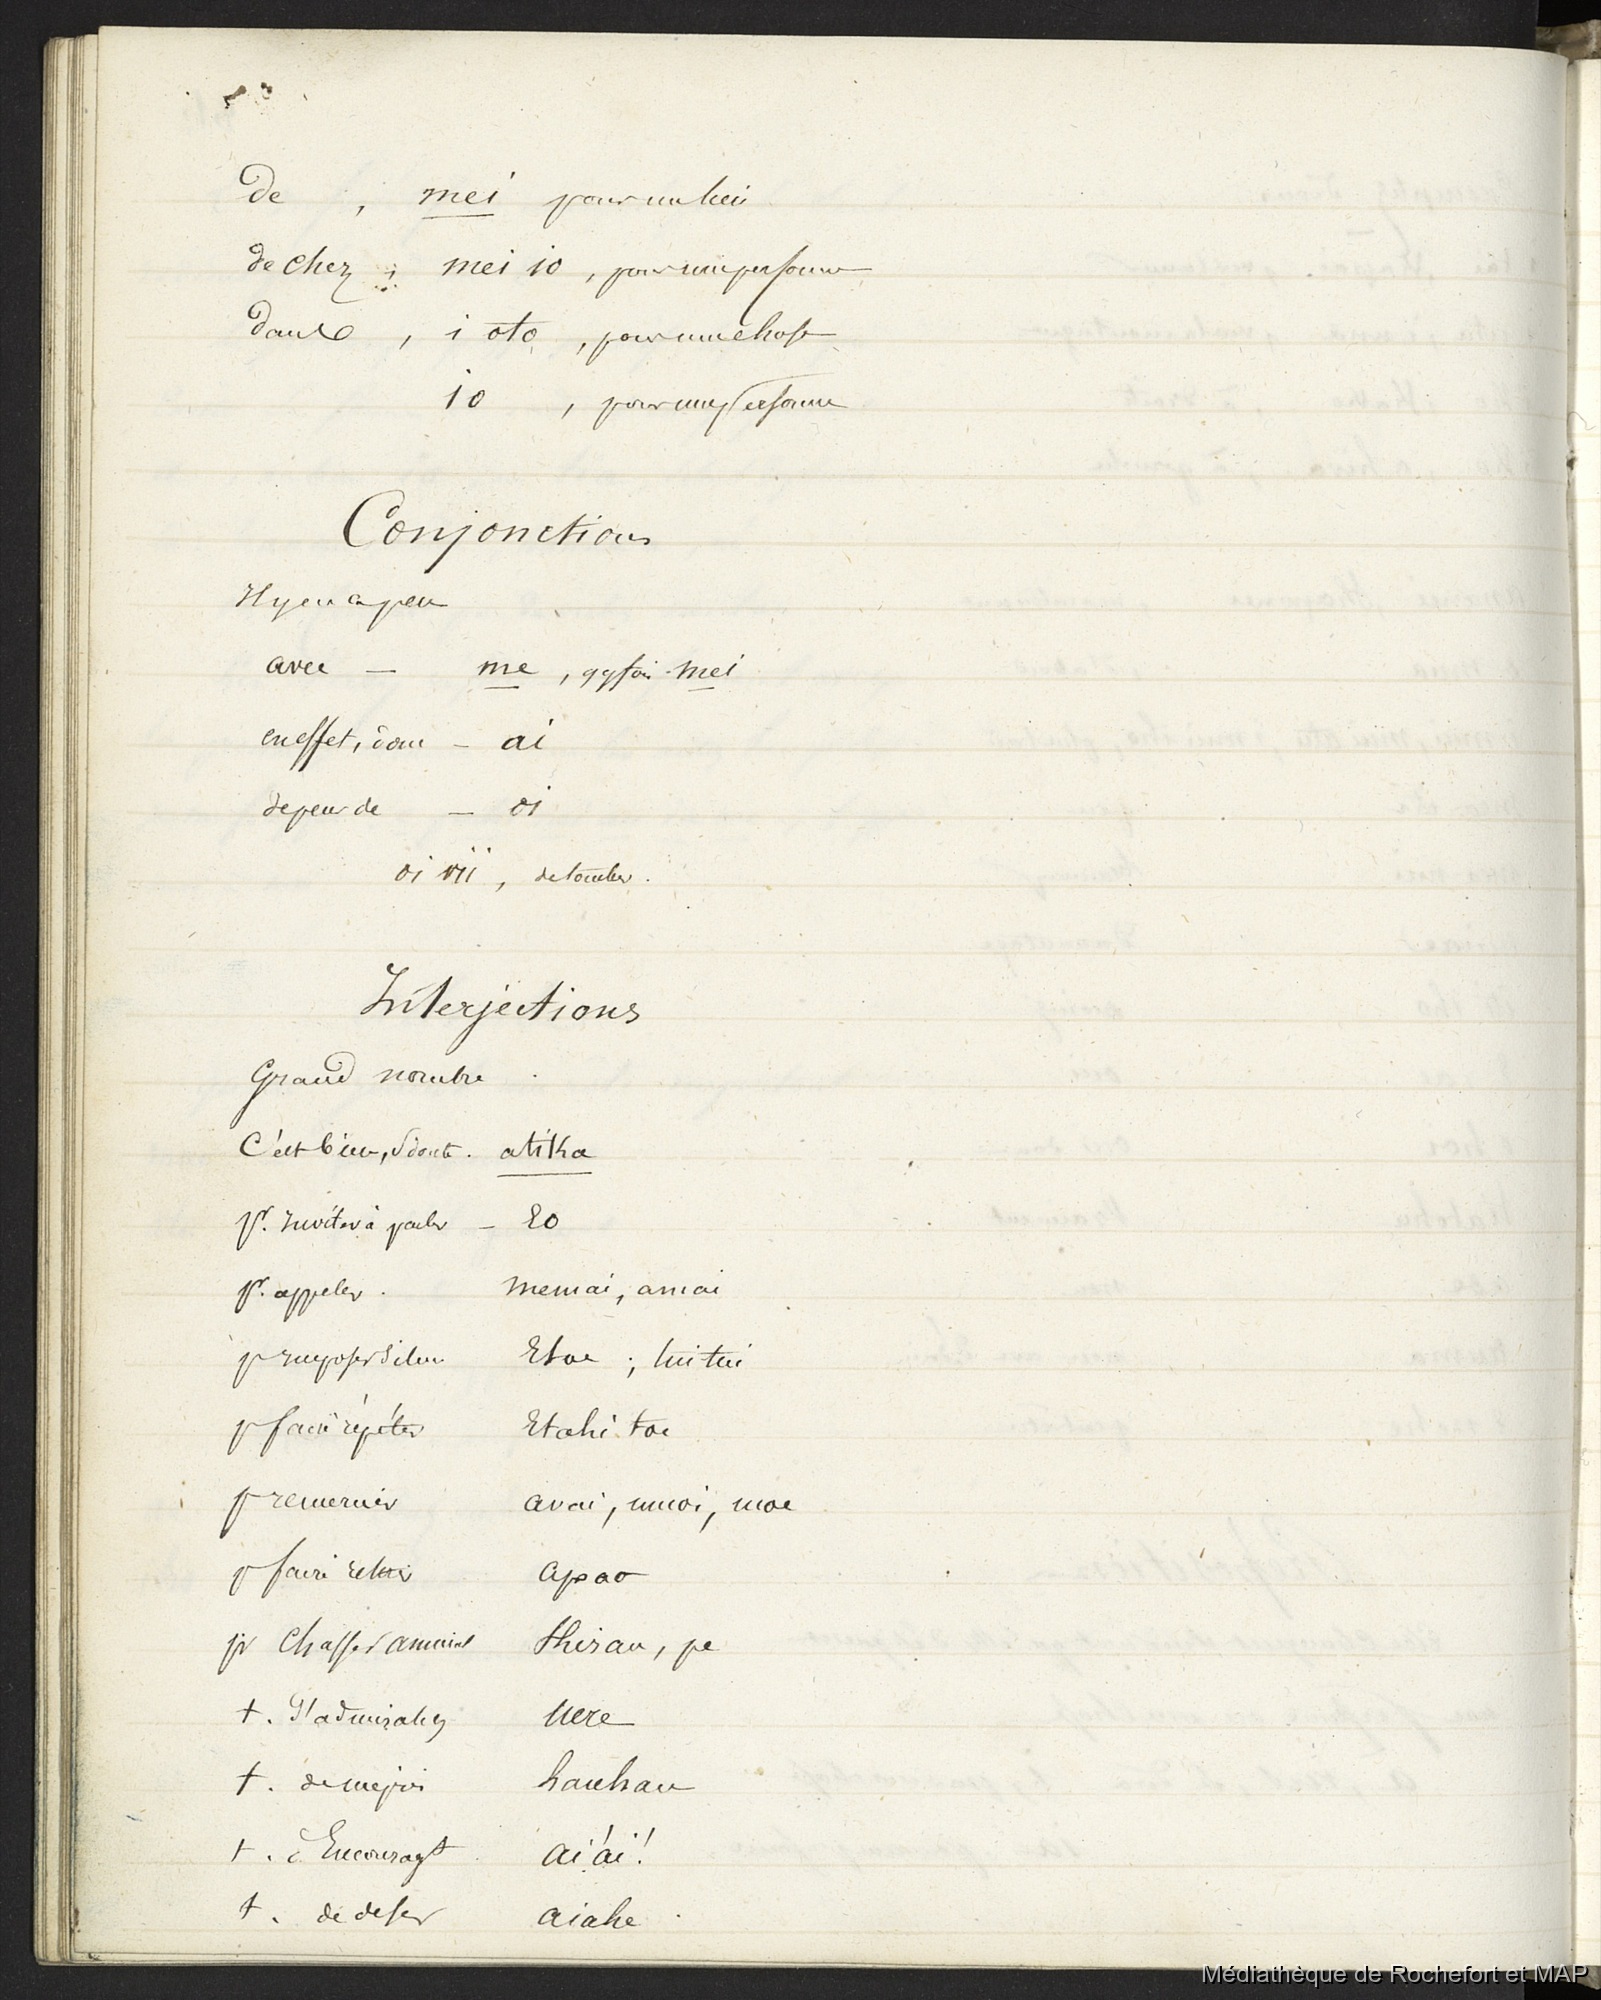 De , mei pour un lieu
de chez , mei io , pour une personne
dans , i oto , pour une chose
io , pour une personne
Conjonctions
Il y en a peu
avec — me , qq fois mei
en effet, donc — ai
de peur de — oi
oi vii , de tomber .
Interjections
Grand nombre .
C'est bien, s doute . atika
pr. inviter à parler — Eo
pr. appeler . memai, amai
pr imposer silen Etoe ; tuitui
pr faire répéter Etahi toe
pr remercier avai, umoi, moe
pr faire apao
pr chasser animal , pe
t. d'admirat uere
t. de mépris hauhau
t. d'Encouragt ai! ai!
t. de aiahe .
Médiathèque de Rochefort et MAP